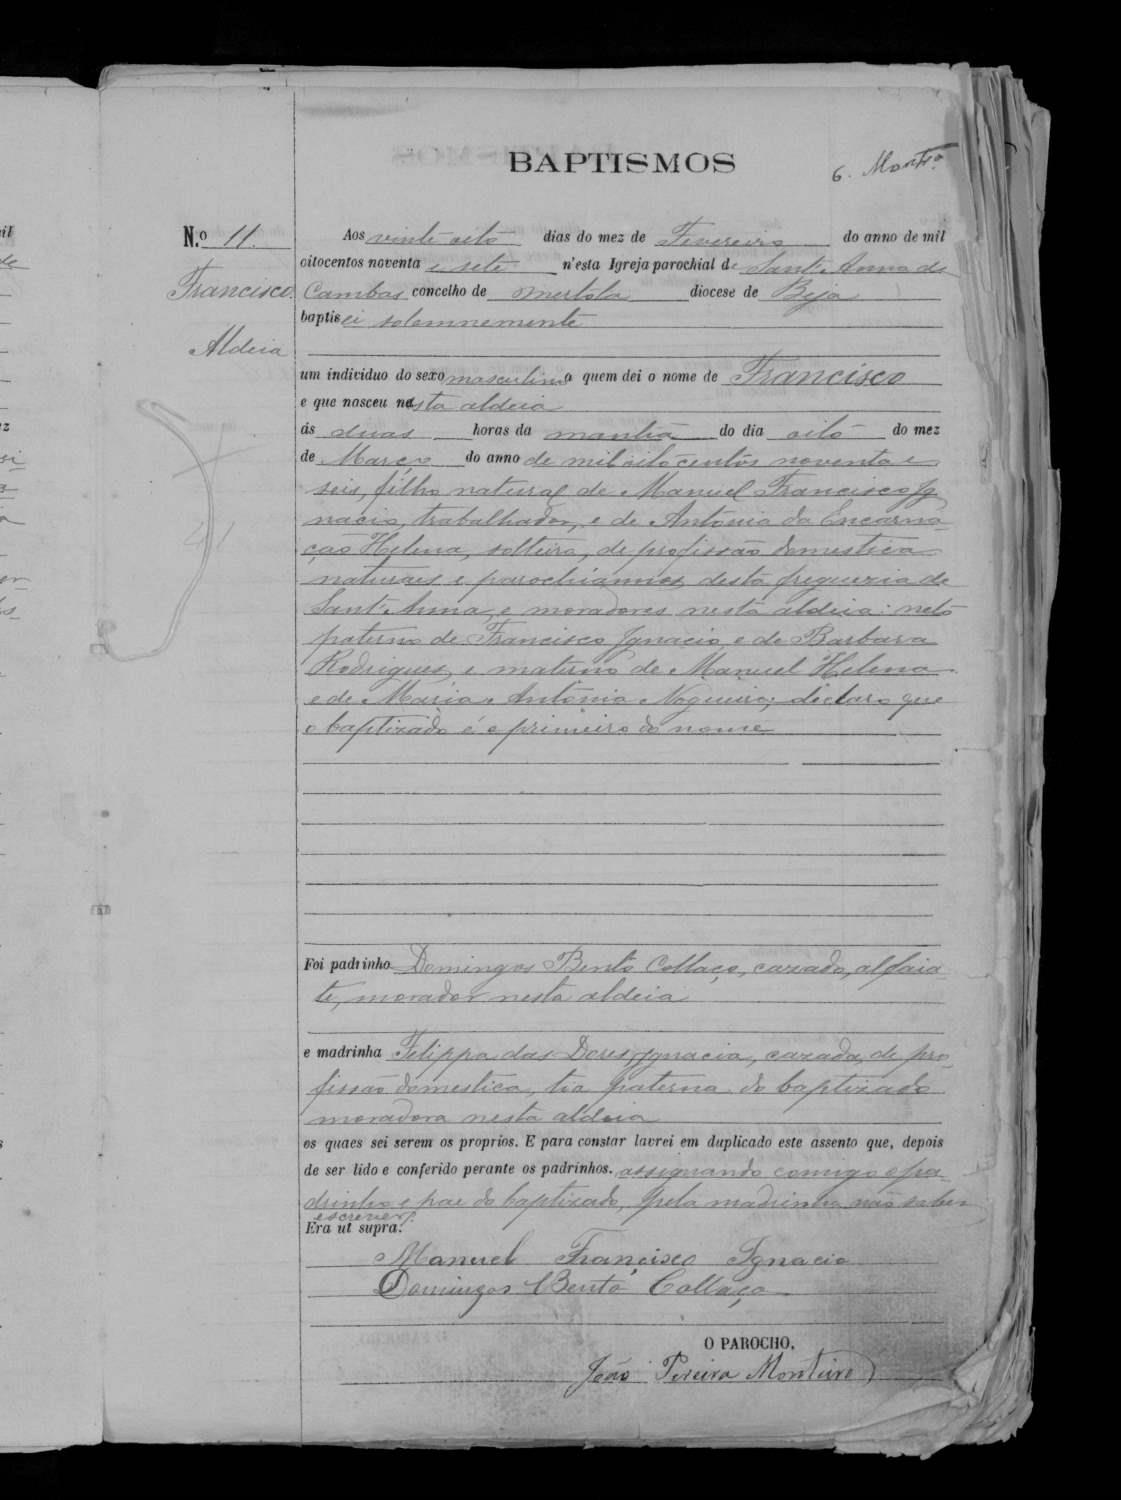 BAPTISMOS
6. Montro
N.º 11.
Francisco.
Aldeia
Aos vinte oito dias do mez de Fevereiro do anno de mil
oitocentos noventa e sete n'esta Igreja parochial de Sant'Anna de
Cambas concelho de Mertola diocese de Beja
baptisei solemnemente
um individuo do sexo masculino a quem dei o nome de Francisco
e que nasceu nesta aldeia
ás duas horas da manhã do dia oito do mez
de Março do anno de mil oito centos noventa e
seis, filho natural de Manuel Francisco Ig
nacio, trabalhador, e de Antonia da Encarna-
ção Helena, solteira, de profissão domestica
naturaes e parochianos desta freguezia de
Sant'Anna, e moradores nesta aldeia: neto
paterno de Francisco Ignacio e de Barbara
Rodrigues, e materno de Manuel Helena
e de Maria Antonia Nogueira; declaro que
o baptizado é o primeiro do nome
Foi padrinho Domingos Bento Collaço, cazado, alfaia-
te, morador nesta aldeia
e madrinha Filippa das Dores Ignacia, cazada, de pro-
fissão domestica, tia paterna do baptizado
moradora nesta aldeia
os quaes sei serem os proprios. E para constar lavrei em duplicado este assento que, depois
de ser lido e conferido perante os padrinhos. assignando comigo o pa-
drinho e pae do baptizado, pela madrinha não saber
escrever.
Era ut supra.
Manuel Françisco Ignacio
Domingos Bento Collaço
O PAROCHO,
João Pereira Monteiro